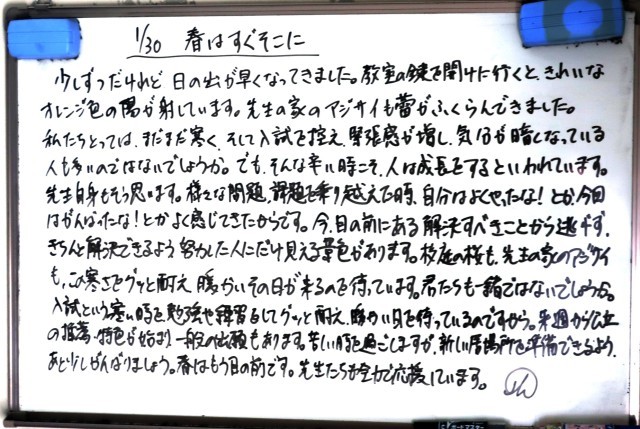 1/30 春はすぐそこに
少しずつだけれど 日の出が早くなってきました。教室の鍵を開けに行くと、きれいな
オレンジ色の陽が射しています。先生の家のアジサイも蕾がふくらんできました。
私たちとっては、まだまだ寒く、そして入試を控え、緊張感が増し、気分が暗くなっている
人も多いのではないでしょうか。でも、そんな辛い時こそ、人は成長をするといわれています。
先生自身もそう思います。様々な問題、課題を乗り越えた時、自分はよくやったな!とか、今回
はがんばったな!とかよく感じてきたからです。今、目の前にある解決すべきことから逃げず、
きちんと解決できるよう努力した人にだけ見える景色があります。校庭の桜も、先生の家のアジサイ
も、この寒さをグッと耐え、暖かいその日が来るのを待っています。君たちも一緒ではないでしょうか。
入試という寒い時を勉強や練習をしてグッと耐え、暖かい日を待っているのですから。来週から公立
の推薦・特色が始まり、一般の出願もあります。苦しい時を過ごしますが、新しい居場所を準備できるよう、
あと少しがんばりましょう。春はもう目の前です。先生たちも全力で応援しています。